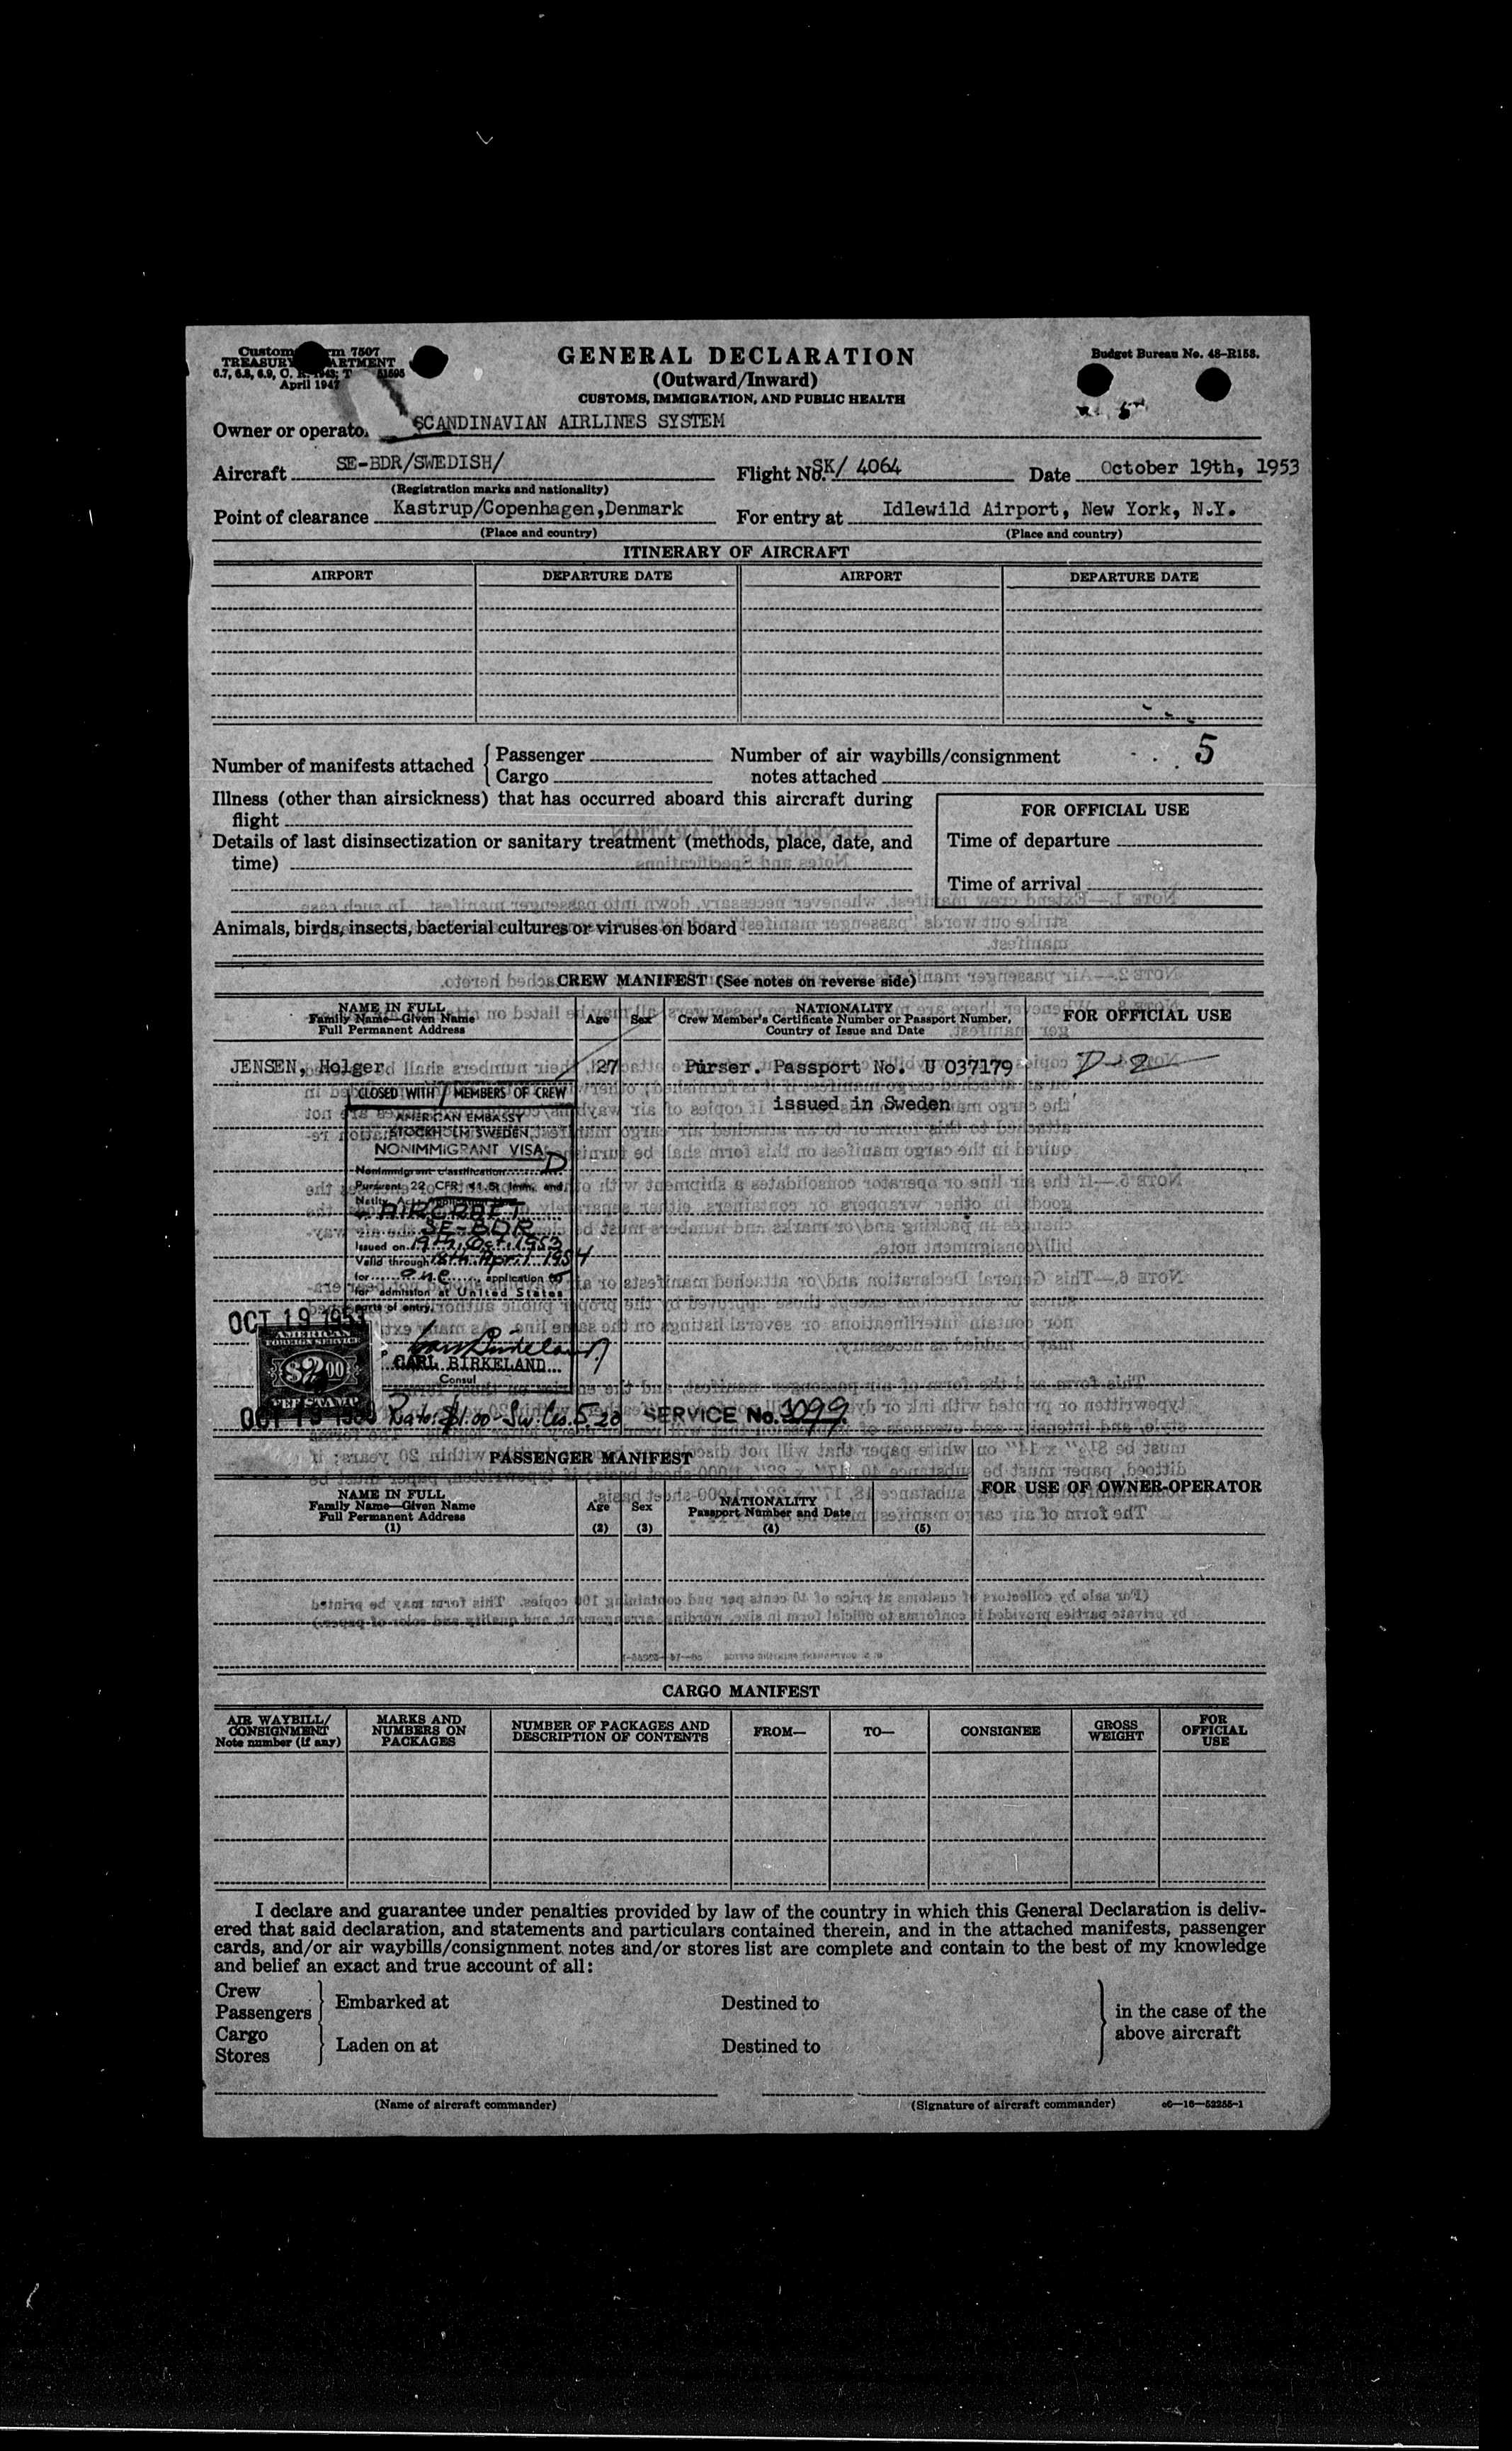 Customs Form 7507
TREASURY DEPARTMENT
April 1947
GENERAL DECLARATION
(Outward/Inward)
CUSTOMS, IMMIGRATION, AND PUBLIC HEALTH
Budget Bureau No. 48-R158.
Owner or operator SCANDINAVIAN AIRLINES SYSTEM
Aircraft SE-BDR/SWEDISH/ Flight No. SK/ 4064 Date October 19th, 1953
(Registration marks and nationality)
Point of clearance Kastrup/Copenhagen,Denmark For entry at Idlewild Airport, New York, N.Y.
(Place and country) (Place and country)
ITINERARY OF AIRCRAFT
AIRPORT DEPARTURE DATE AIRPORT DEPARTURE DATE
Number of manifests attached { Passenger Number of air waybills/consignment 5
Cargo notes attached
Illness (other than airsickness) that has occurred aboard this aircraft during
flight
Details of last disinsectization or sanitary treatment (methods, place, date, and
time)
FOR OFFICIAL USE
Time of departure
Time of arrival
Animals, birds, insects, bacterial cultures or viruses on board
CREW MANIFEST (See notes on reverse side)
NAME IN FULL
Family Name—Given Name
Full Permanent Address
Age Sex
NATIONALITY
Crew Member's Certificate Number or Passport Number,
Country of Issue and Date
FOR OFFICIAL USE
JENSEN, Holger 27 Purser. Passport No. U 037179 D-2
issued in Sweden
CLOSED WITH 1 MEMBERS OF CREW
AMERICAN EMBASSY
STOCKHOLM SWEDEN
NONIMMIGRANT VISA
Nonimmigrant classification D
Pursuant 22 CFR 41.5; Imm. and
AIRCRAFT
SE-BDR
Issued on 19th Oct. 1953
Valid through 18th April 1954
for one application to
for admission at United States
ports of entry.
OCT 19 1953
AMERICAN
FOREIGN SERVICE
$2.00
FEE STAMP
CARL BIRKELAND
Consul
OCT 19 1953 Rate: $1.00 - Sw. Crs. 5.20 SERVICE No. 3099
PASSENGER MANIFEST
NAME IN FULL
Family Name—Given Name
Full Permanent Address
(1)
Age
(2)
Sex
(3)
NATIONALITY
Passport Number and Date
(4) (5)
FOR USE OF OWNER-OPERATOR
CARGO MANIFEST
AIR WAYBILL/
CONSIGNMENT
Note number (if any)
MARKS AND
NUMBERS ON
PACKAGES
NUMBER OF PACKAGES AND
DESCRIPTION OF CONTENTS
FROM— TO— CONSIGNEE
GROSS
WEIGHT
FOR
OFFICIAL
USE
I declare and guarantee under penalties provided by law of the country in which this General Declaration is deliv-
ered that said declaration, and statements and particulars contained therein, and in the attached manifests, passenger
cards, and/or air waybills/consignment notes and/or stores list are complete and contain to the best of my knowledge
and belief an exact and true account of all:
Crew
Passengers } Embarked at Destined to
Cargo
Stores } Laden on at Destined to
} in the case of the
above aircraft
(Name of aircraft commander) (Signature of aircraft commander) c6—16—52255-1